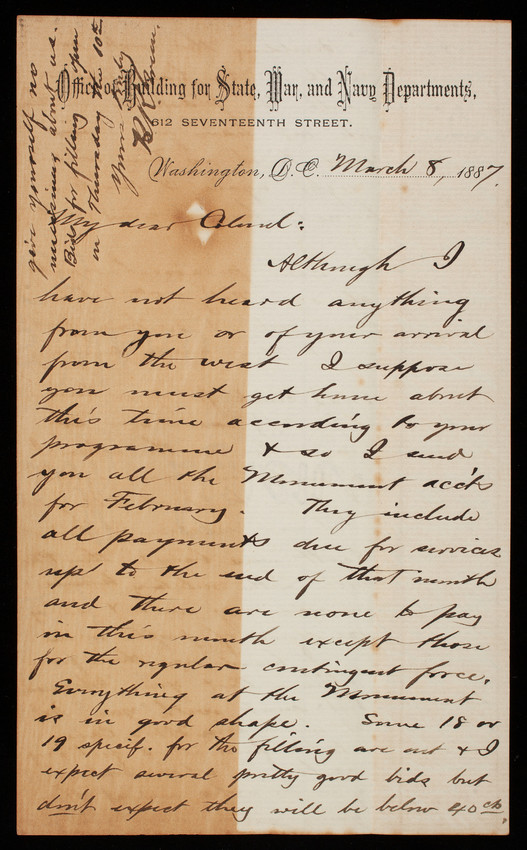 Office of Building for State, War, and Navy Departments,
612 SEVENTEENTH STREET.
Washington, D.C. March 8, 1887.
My dear Colonel:
Although I
have not heard anything
from you or of your arrival
from the west I suppose
you must get home about
this time according to your
programme & so I send
you all the Monument acc'ts
for February. They include
all payments due for services
up to the end of that month
and there are none to pay
in this month except those
for the regular contingent force.
Everything at the Monument
is in good shape. Some 18 or
19 specif. for the filling are out & I
expect several pretty good bids but
don't expect they will be below 40 cts.
give yourself no
uneasiness about us.
Bids for filling open
on Thursday the 10th
Yours truly